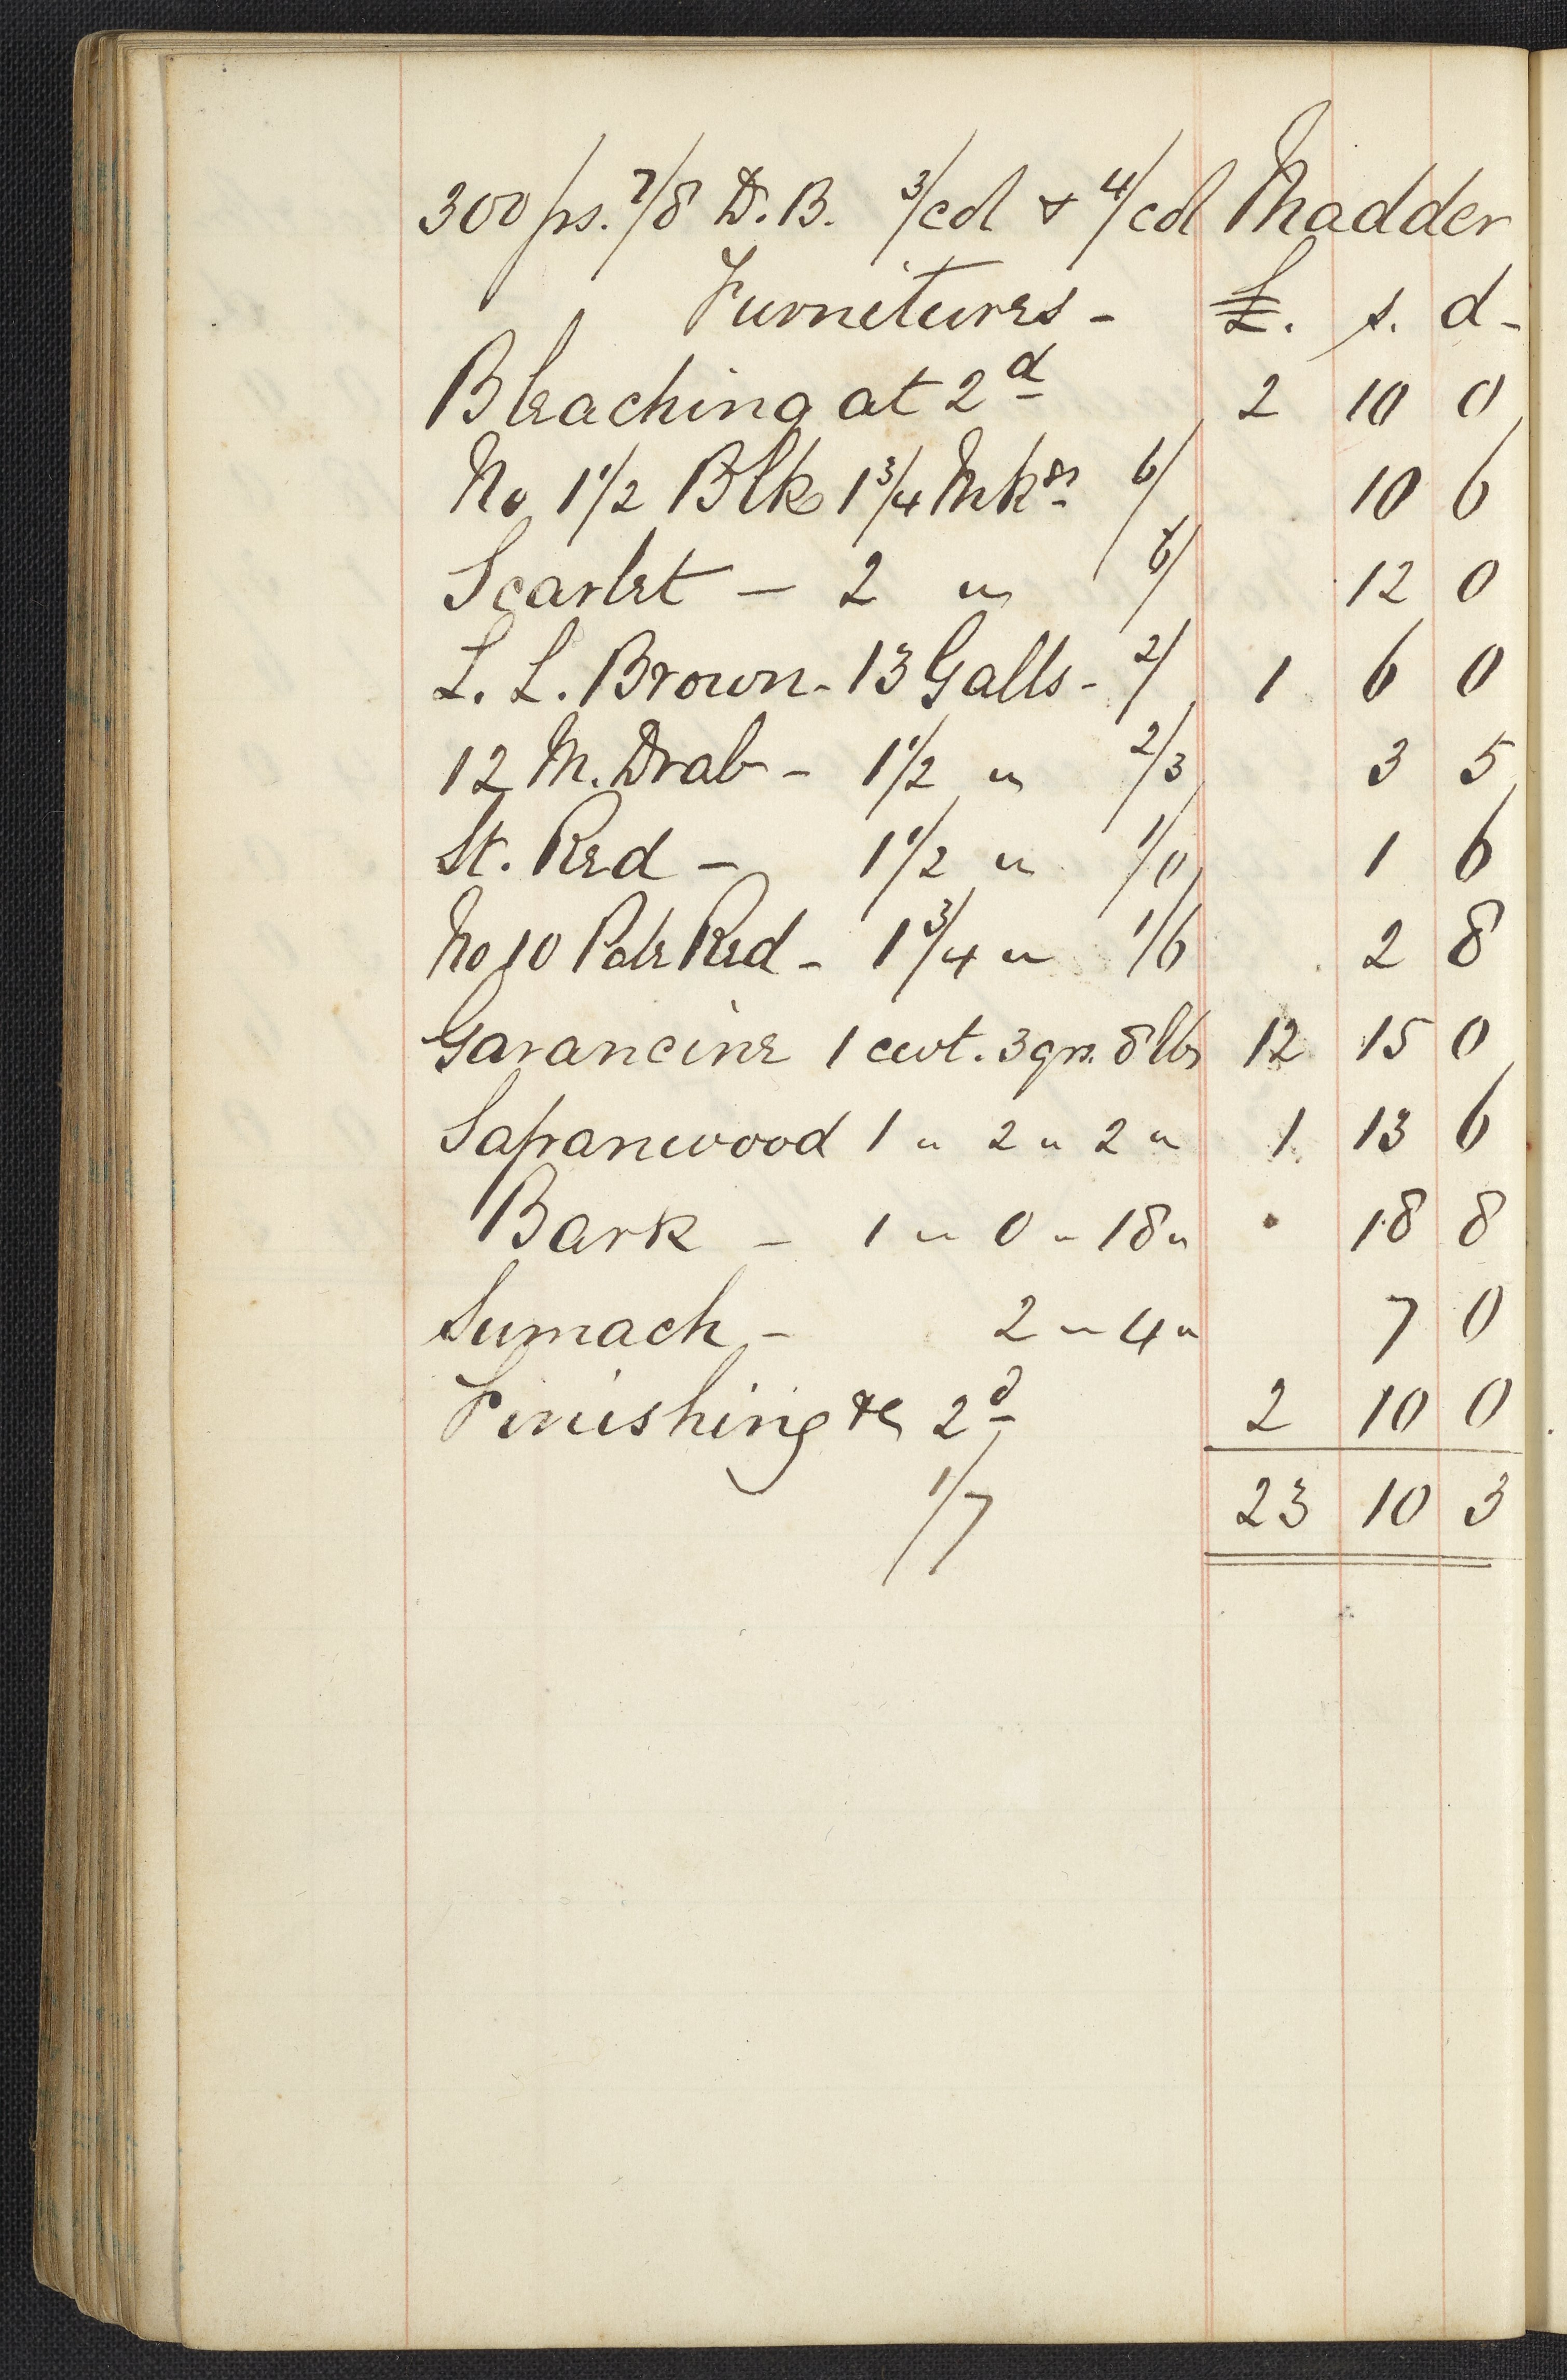 300 ps. 7/8 D. B. 3/col & 4/col Madder
Furnitures - £. s. d -
Bleaching at 2d 2 10 0
No 1 1/2 Blk 1 3/4 Mks 6/ 10 6
Scarlet - 2 " 6/ 12 0
L. L. Brown - 13 Galls - 2/ 1 6 0
12 M. Drab - 1 1/2 " 2/3 3 5
St. Red - 1 1/2 " 1/0 1 6
No 10 Pale Red - 1 3/4 " 1/6 2 8
Garancine 1 cwt. 3 qrs. 8 lbs 12 15 0
Sapanwood 1 " 2 " 2 " 1 13 6
Bark - 1 " 0 " 18 " 18 8
Sumach - 2 " 4 " 7 0
Finishing &c 2d 2 10 0
1/7 23 10 3